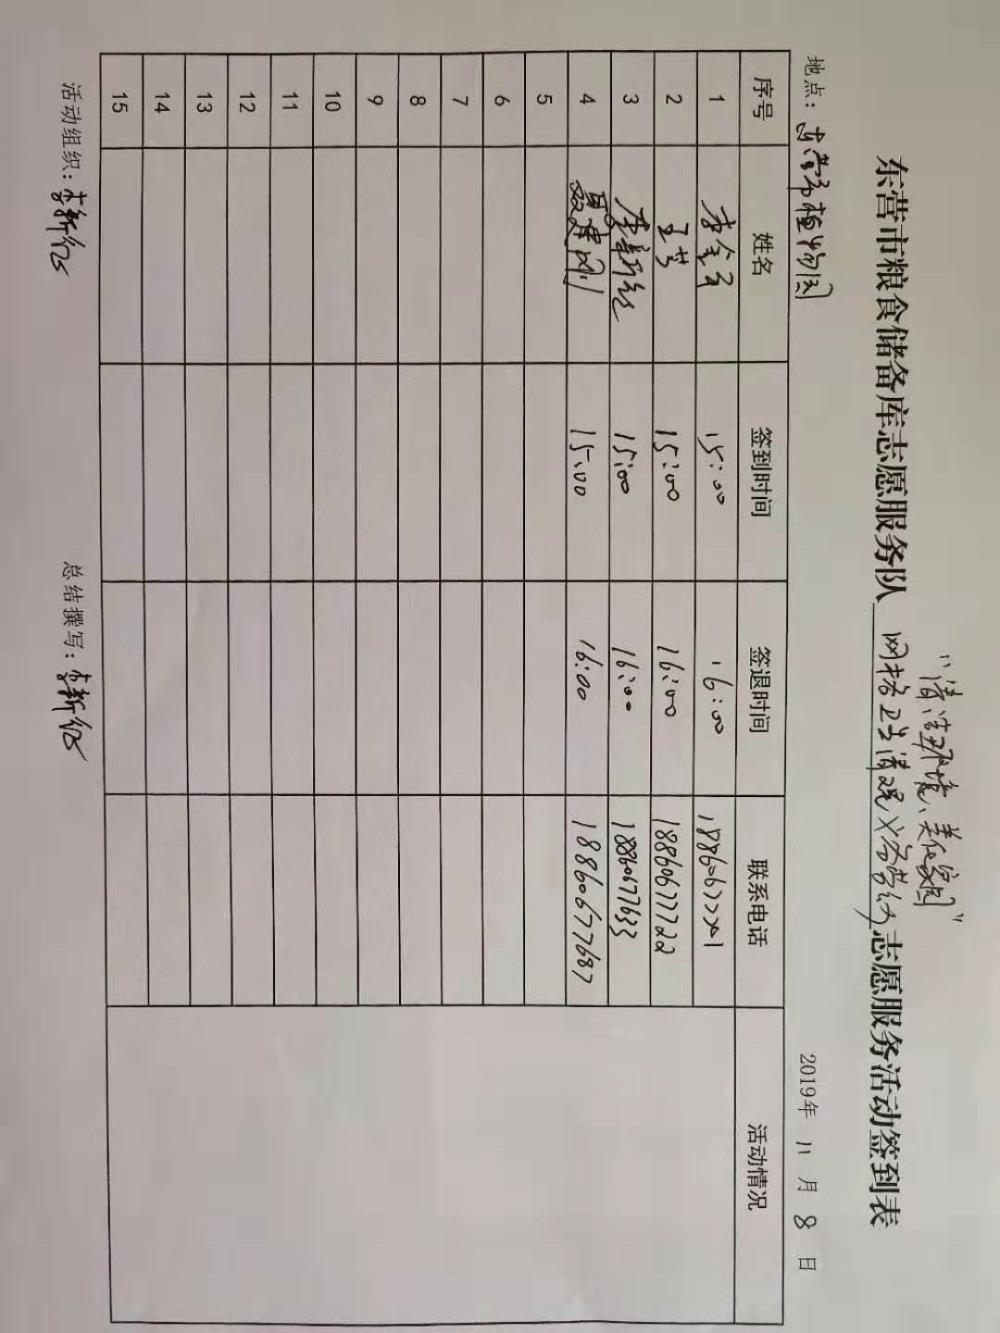 "清洁环境、美化家园"
东营市粮食储备库志愿服务队 网格卫生清理义务劳动 志愿服务活动签到表
地点：东营市植物园 2019年 11 月 8 日
序号 姓名 签到时间 签退时间 联系电话 活动情况
1 李金 15:00 16:00
2 王芳 15:00 16:00 18860677722
3 李新红 15:00 16:00 18860677633
4 聂建刚 15:00 16:00 18860677687
5
6
7
8
9
10
11
12
13
14
15
活动组织：李新红 总结撰写：李新红